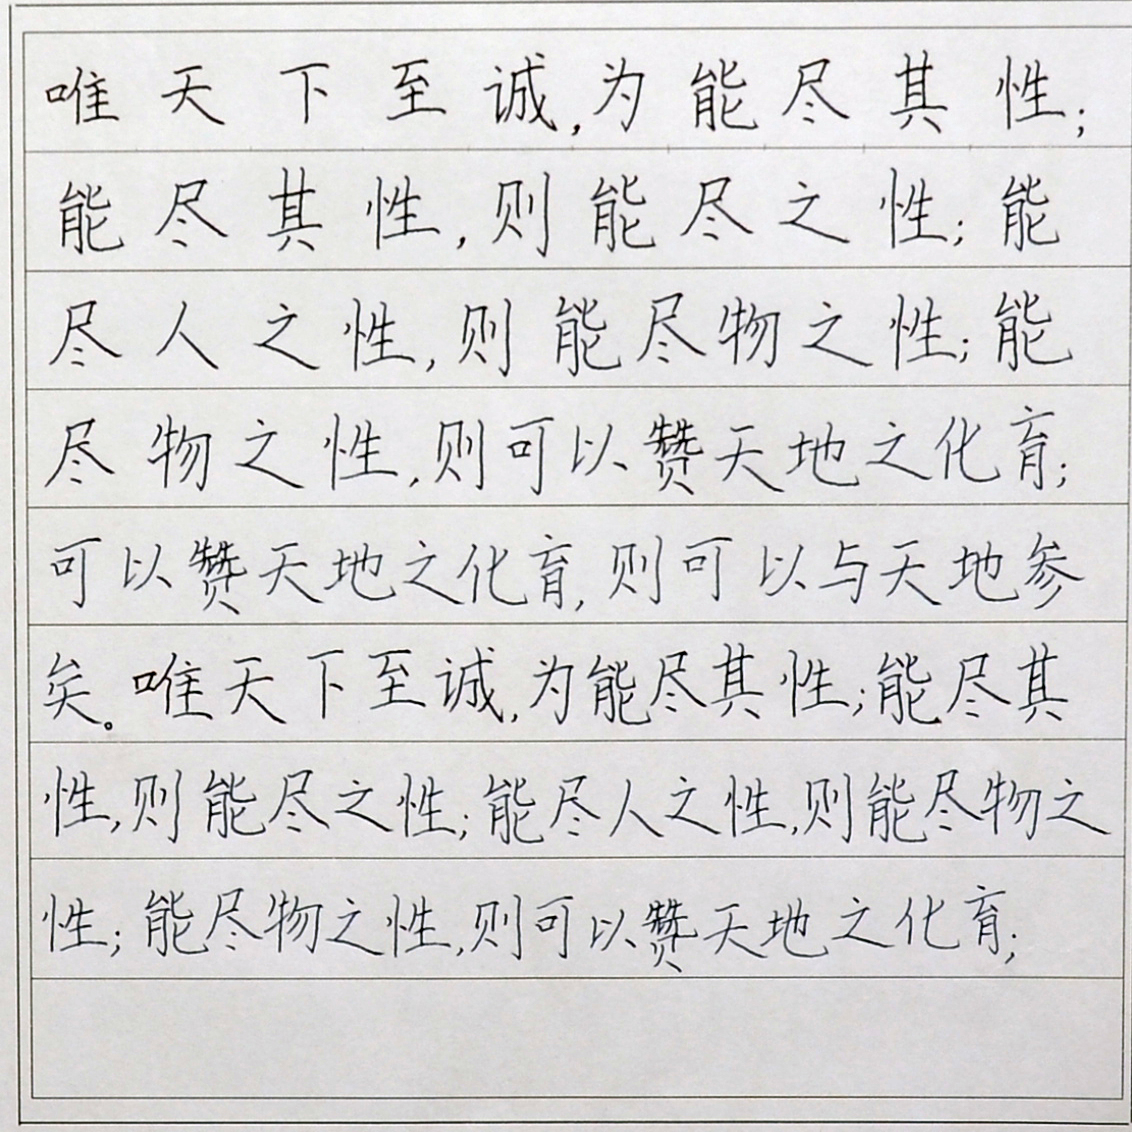 唯天下至诚,为能尽其性;
能尽其性,则能尽之性;能
尽人之性,则能尽物之性;能
尽物之性,则可以赞天地之化育;
可以赞天地之化育,则可以与天地参
矣。唯天下至诚,为能尽其性;能尽其
性,则能尽之性;能尽人之性,则能尽物之
性;能尽物之性,则可以赞天地之化育;